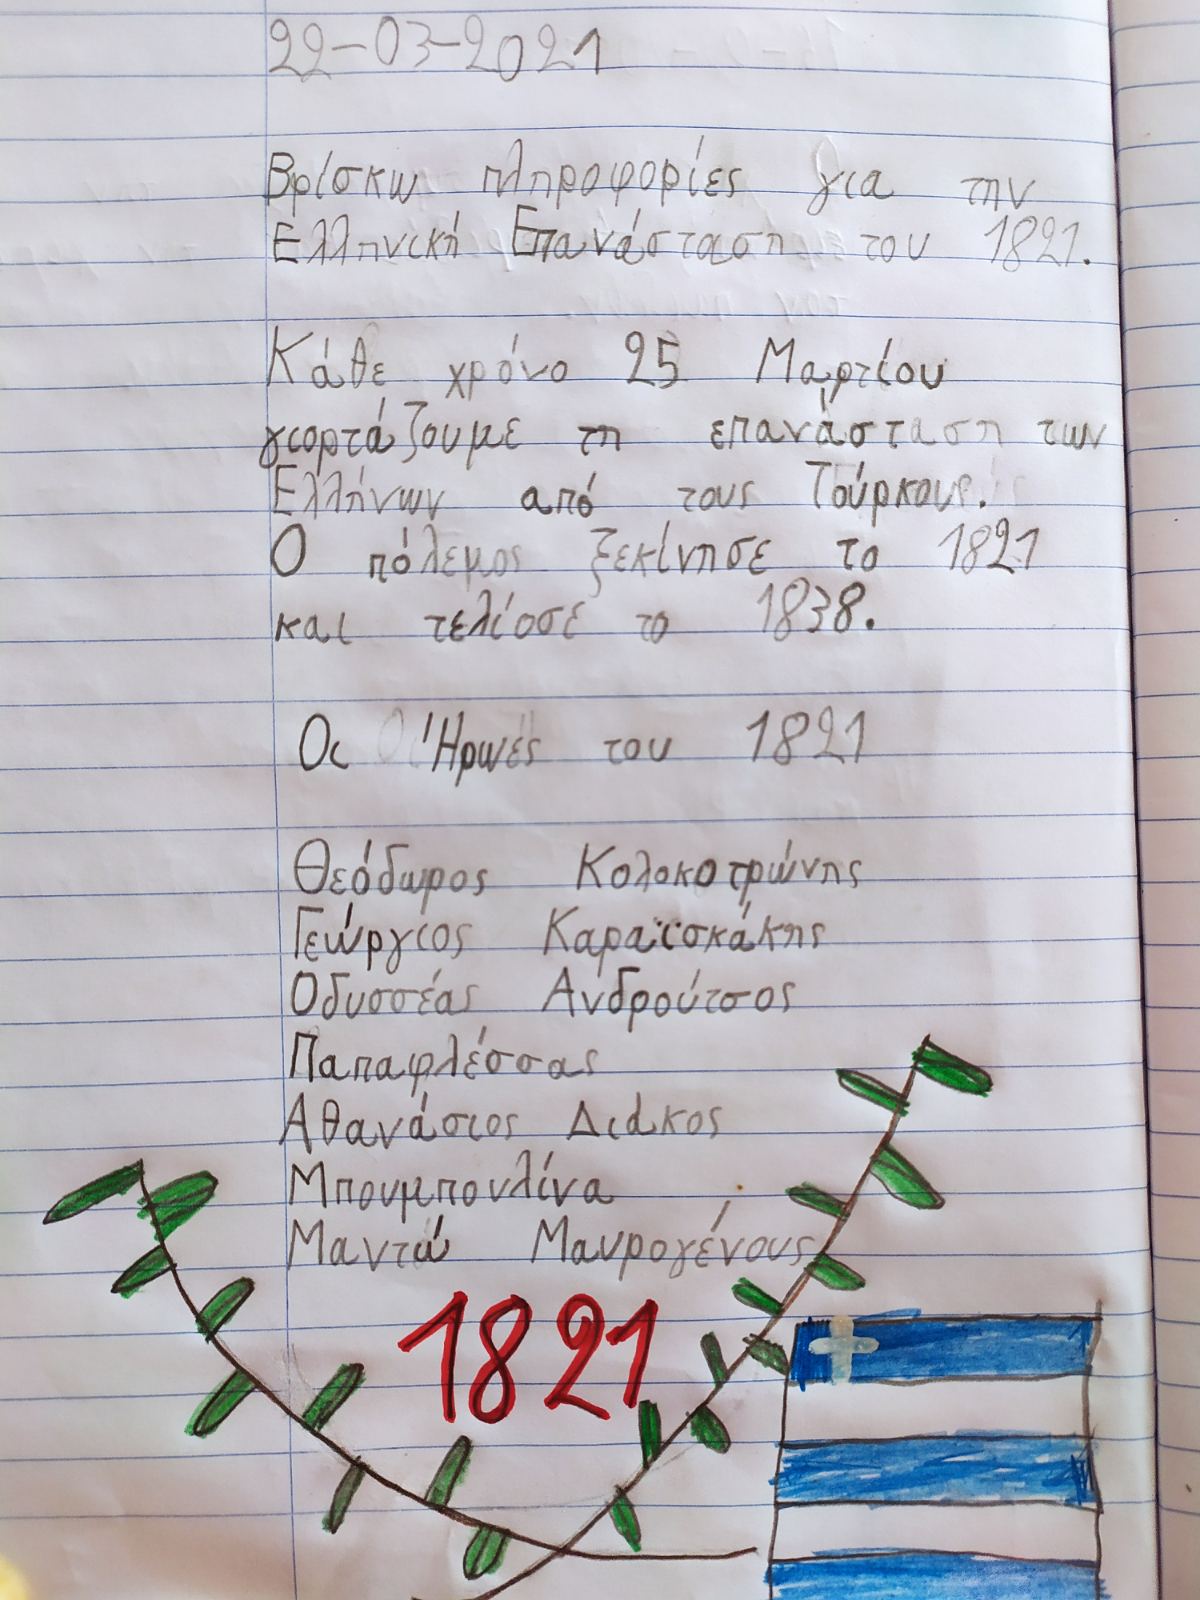 22-03-2021
Βρίσκω πληροφορίες για την
Ελληνική Επανάσταση του 1821.
Κάθε χρόνο 25 Μαρτίου
γιορτάζουμε τη επανάσταση των
Ελλήνων από τους Τούρκους.
Ο πόλεμος ξεκίνησε το 1821
και τελίοσε το 1838.
Οι Ήρωές του 1821
Θεόδωρος Κολοκοτρώνης
Γεώργιος Καραϊσκάκης
Οδυσσέας Ανδρούτσος
Παπαφλέσσας
Αθανάσιος Διάκος
Μπουμπουλίνα
Μαντώ Μαυρογένους
1821